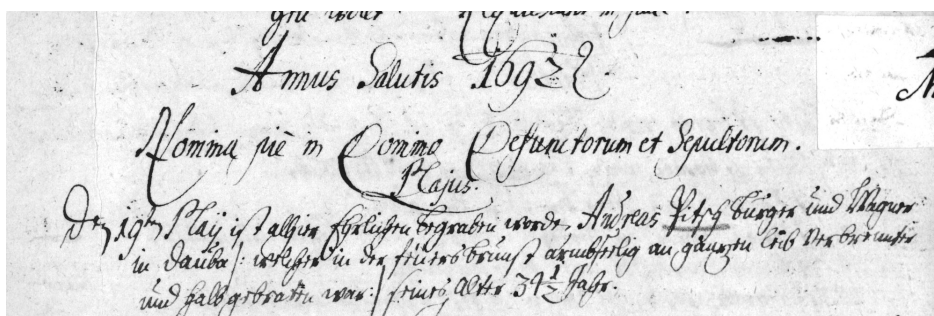 Annus Salutis 1692
Nomina pie in Domino Defunctorum et Sepultorum.
Majus.
Den 19ten Maÿ ist alhier Ehrlichen begraben worden Andreas Pitsch burger und Wagner
in Dauba /: welcher in der feuersbrunst armbseelig am gantzen leib verbrennter
und halb gebraten war :/ seines Alter 34 1/2 Jahr.